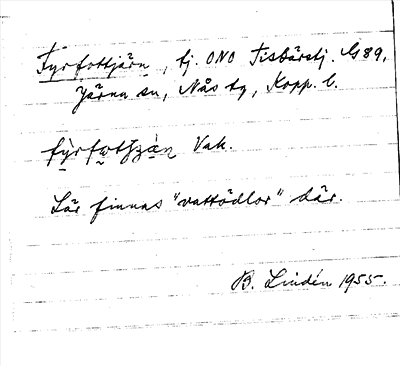 Fyrfottjärn, tj. ONO Tisbärstj. G 89,
Järna sn, Nås tg, Kopp. l.
Vak.
Lär finnas "vattödlor" där.
B. Lindén 1955.